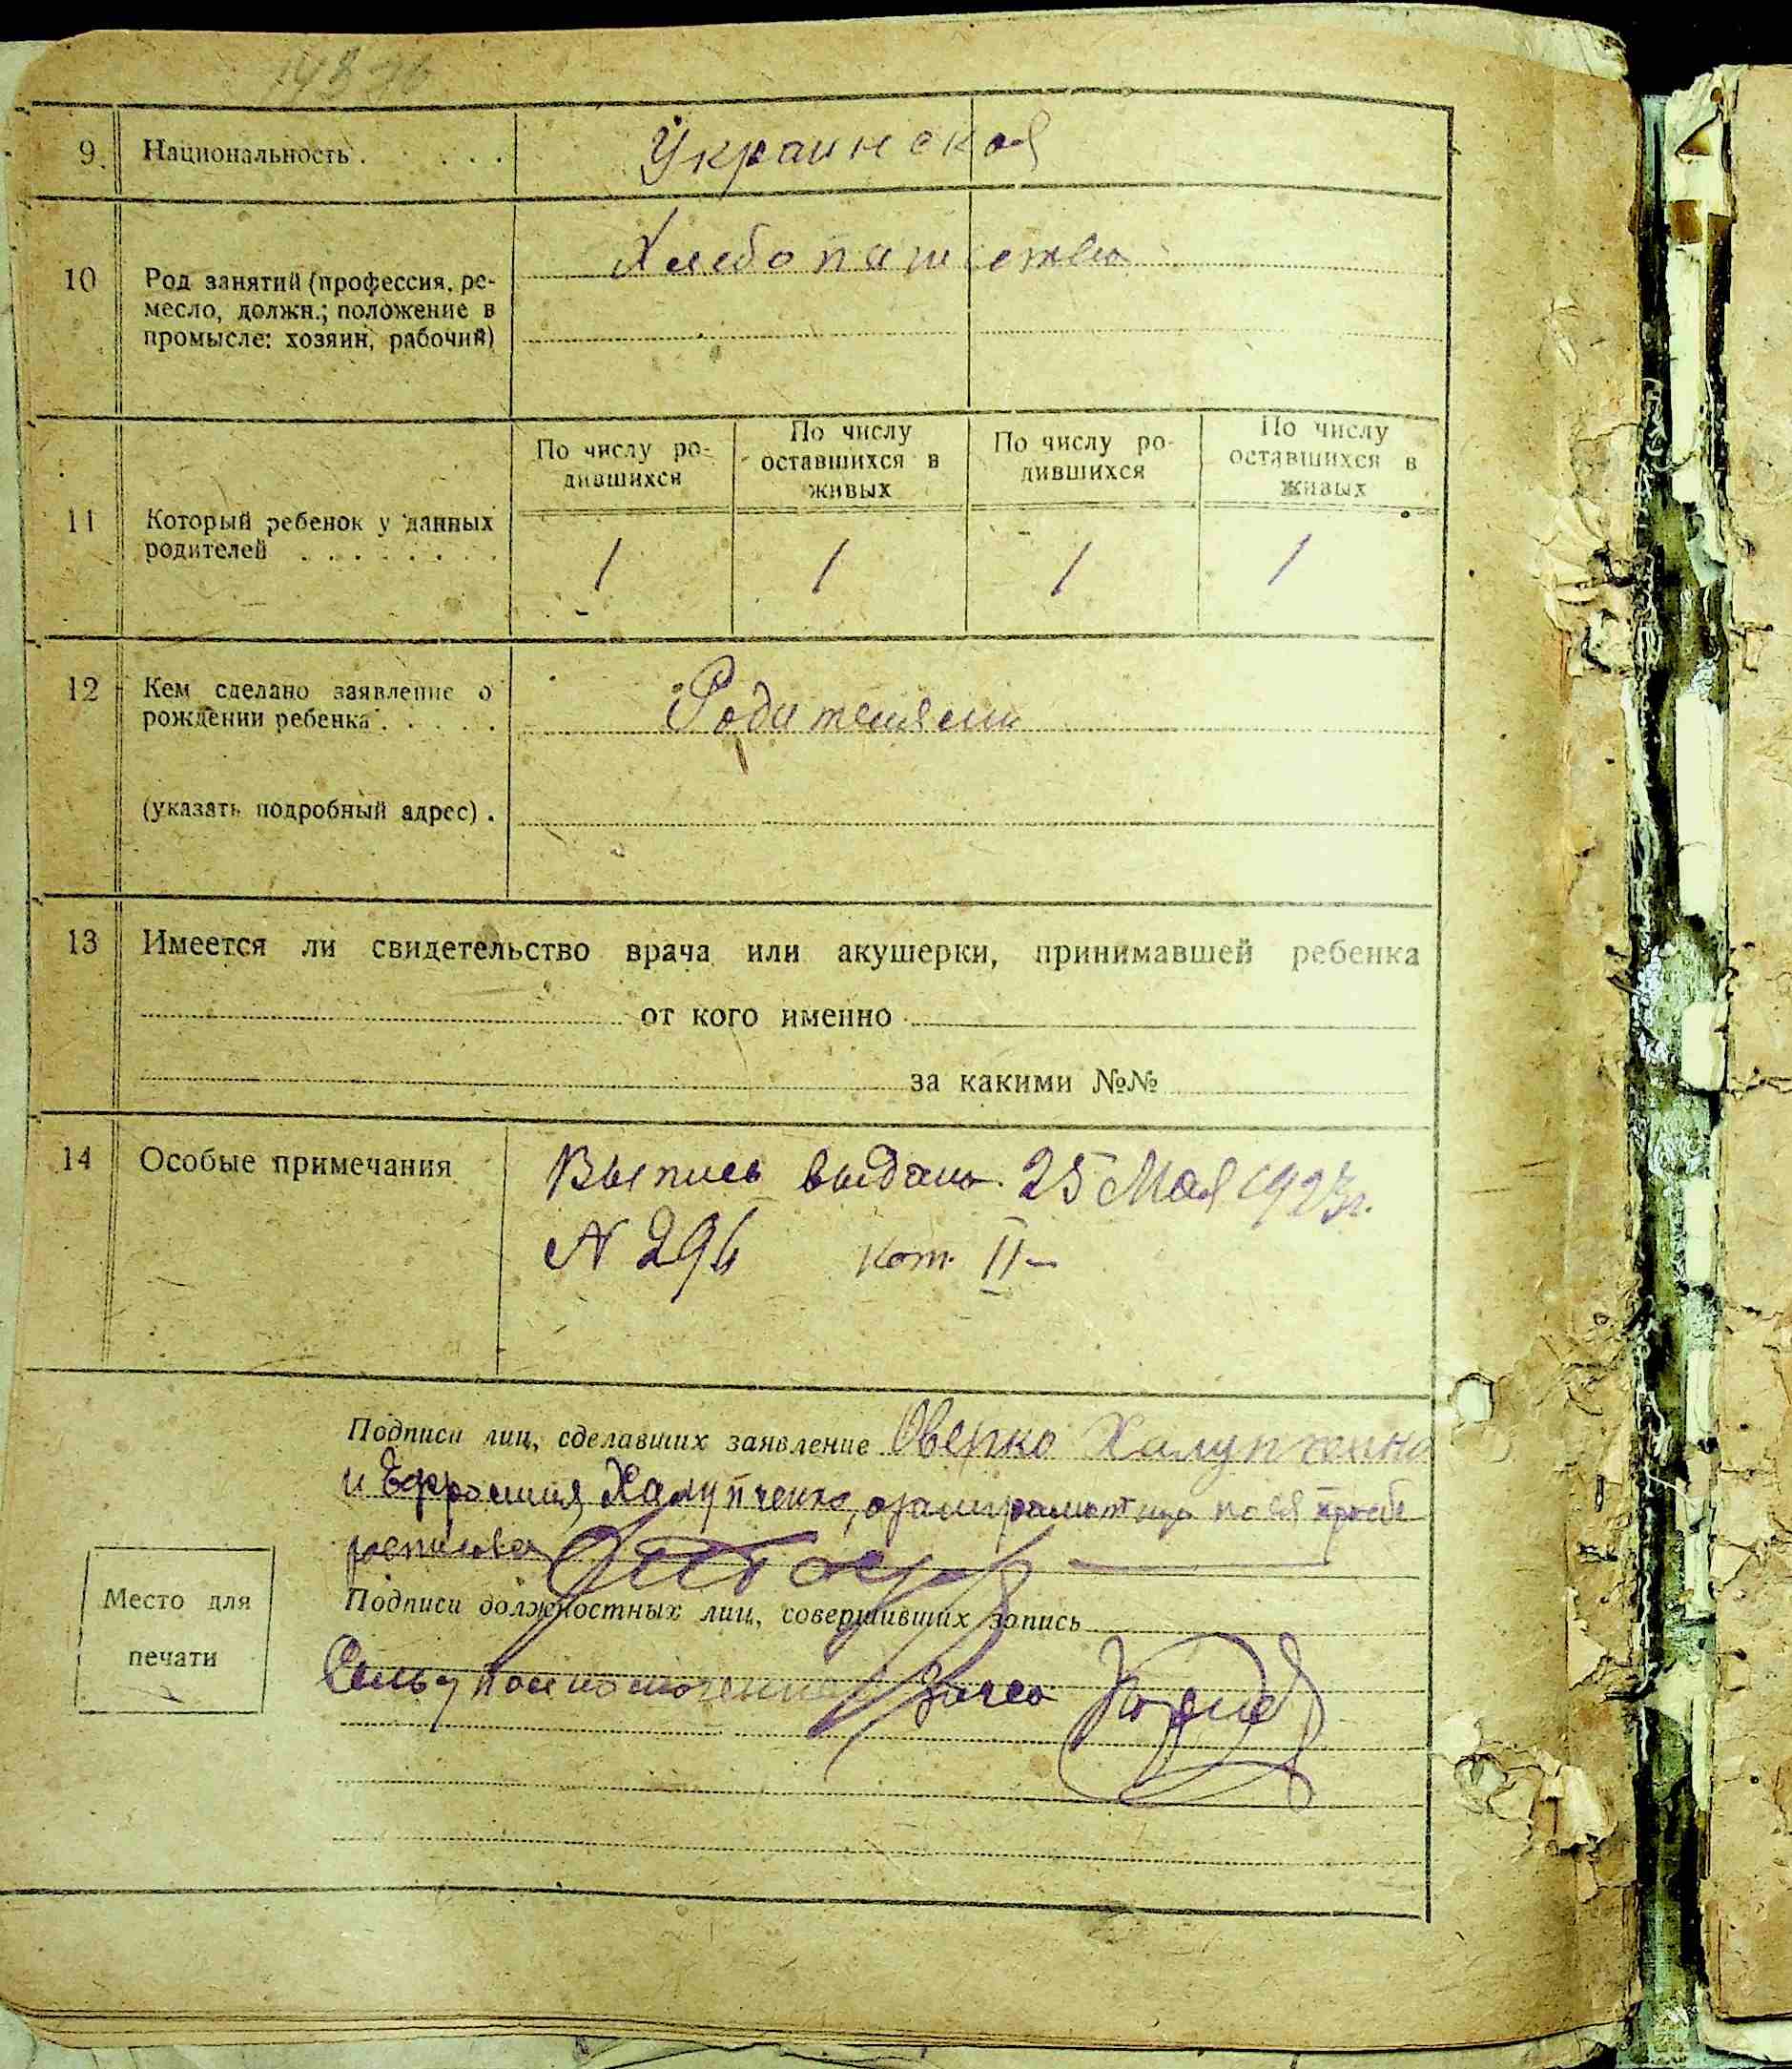 14336
9. Национальность . . . . . Украинская
10 Род занятий (профессия, ре-
месло, должн.; положение в
промысле: хозяин, рабочий)
Хлебопашество
11 Который ребенок у данных
родителей . . . . . . . .
По числу ро-
дившихся
По числу
оставшихся в
живых
По числу ро-
дившихся
По числу
оставшихся в
живых
1 1 1 1
12 Кем сделано заявление о
рождении ребенка . . . . .
Родителями
(указать подробный адрес) .
13 Имеется ли свидетельство врача или акушерки, принимавшей ребенка
от кого именно
за какими №№
14 Особые примечания
Выпись выдана 25 Мая 1923г.
N 294 кат. II-
Подписи лиц, сделавших заявление Оверко Халупченко
и Ефросиния Халупченко,
Место для
печати
Подписи должностных лиц, совершивших запись